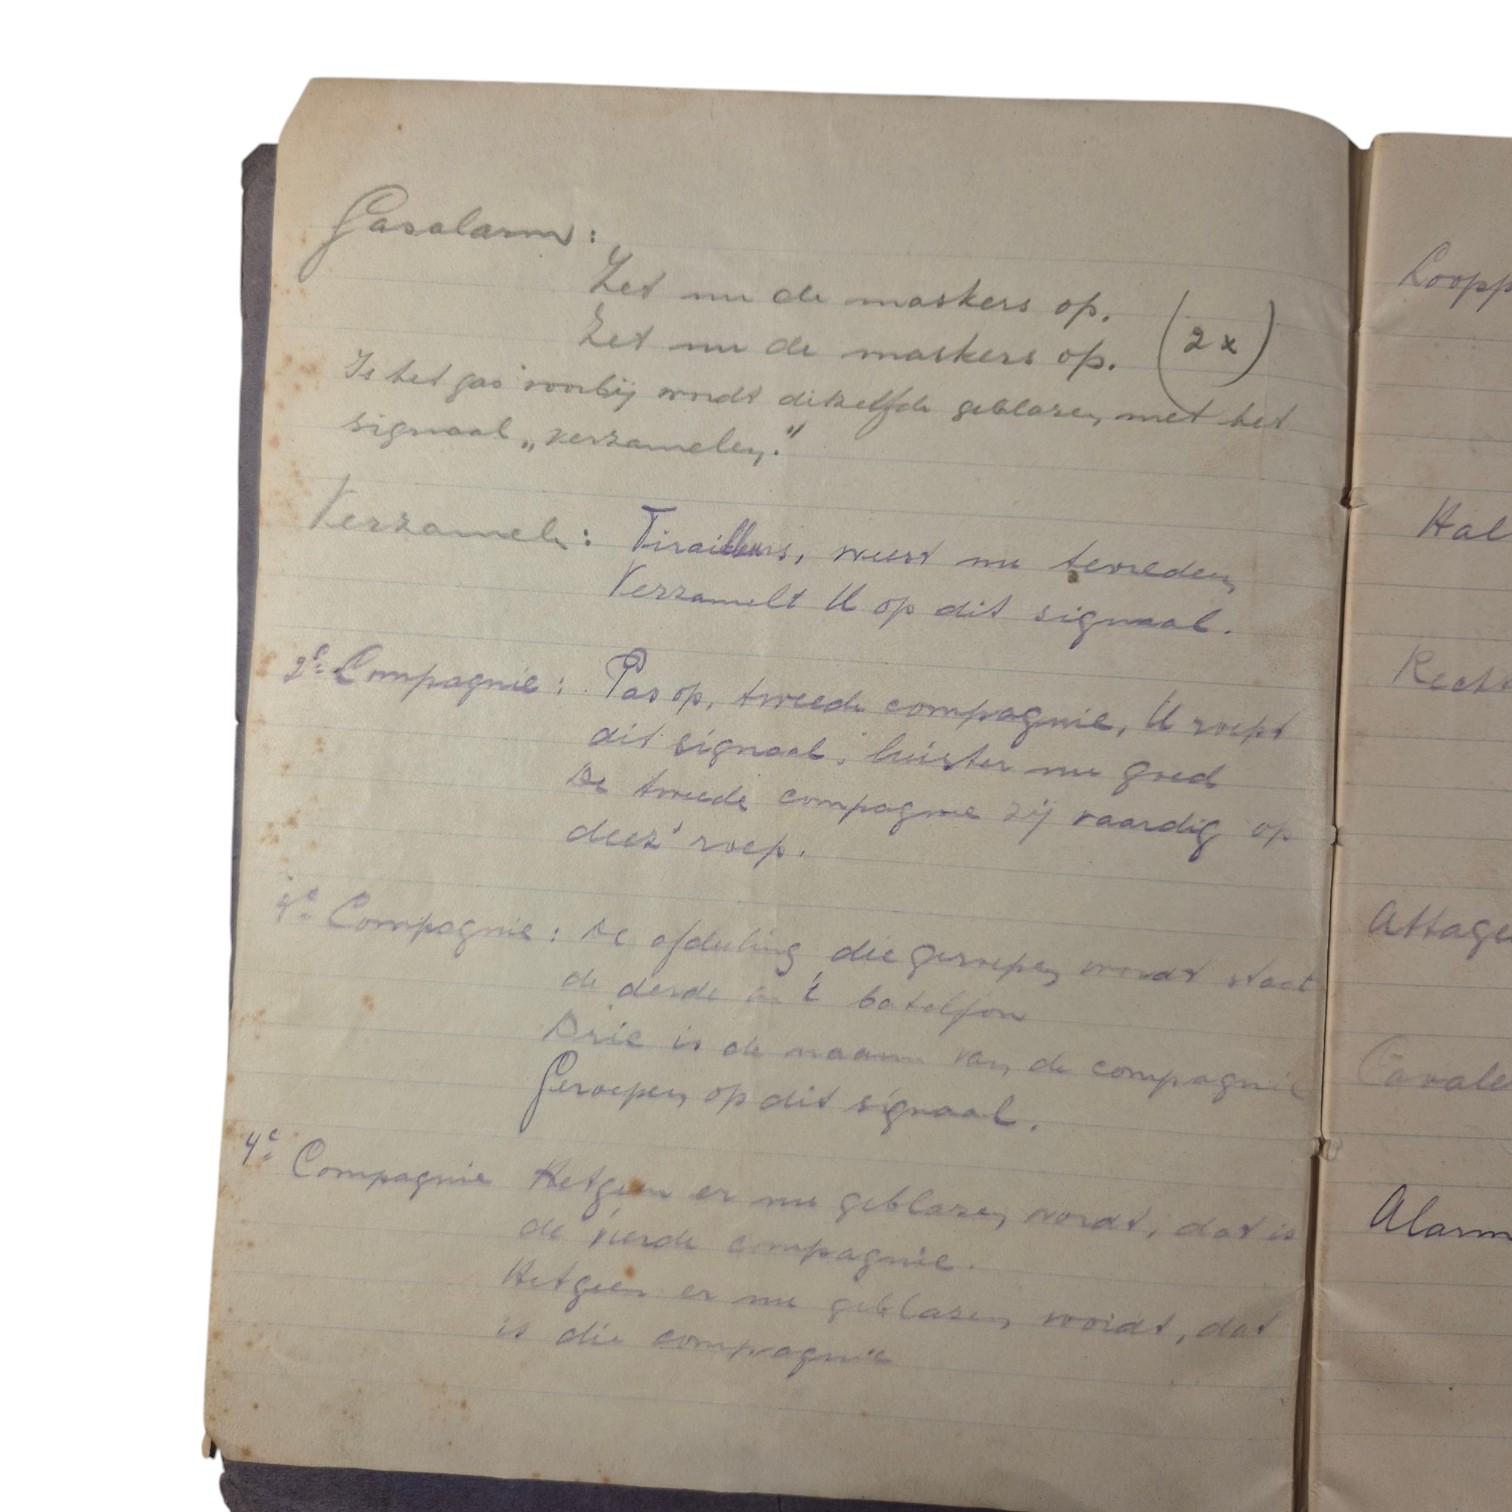 Gasalarm:
Zet nu de maskers op.
Zet nu de maskers op. (2x)
Is het gas voorbij wordt ditzelfde geblazen met het
signaal „verzamelen."
Verzamelen: Tirailleurs, weest nu tevreden,
Verzamelt U op dit signaal.
2e Compagnie: Pas op, tweede compagnie, U roept
dit signaal, luister nu goed
De tweede compagnie zij vaardig op
deez' roep.
Compagnie: De afdeeling die geroepen wordt staat
de derde in 't bataljon
Drie is de naam van de compagnie
Geroepen op dit signaal.
4e Compagnie Hetgeen er nu geblazen wordt, dat is
de vierde compagnie.
Hetgeen er nu geblazen wordt, dat
is die compagnie
Loopp
Hal
Recht
Attaqu
Cavale
Alarm